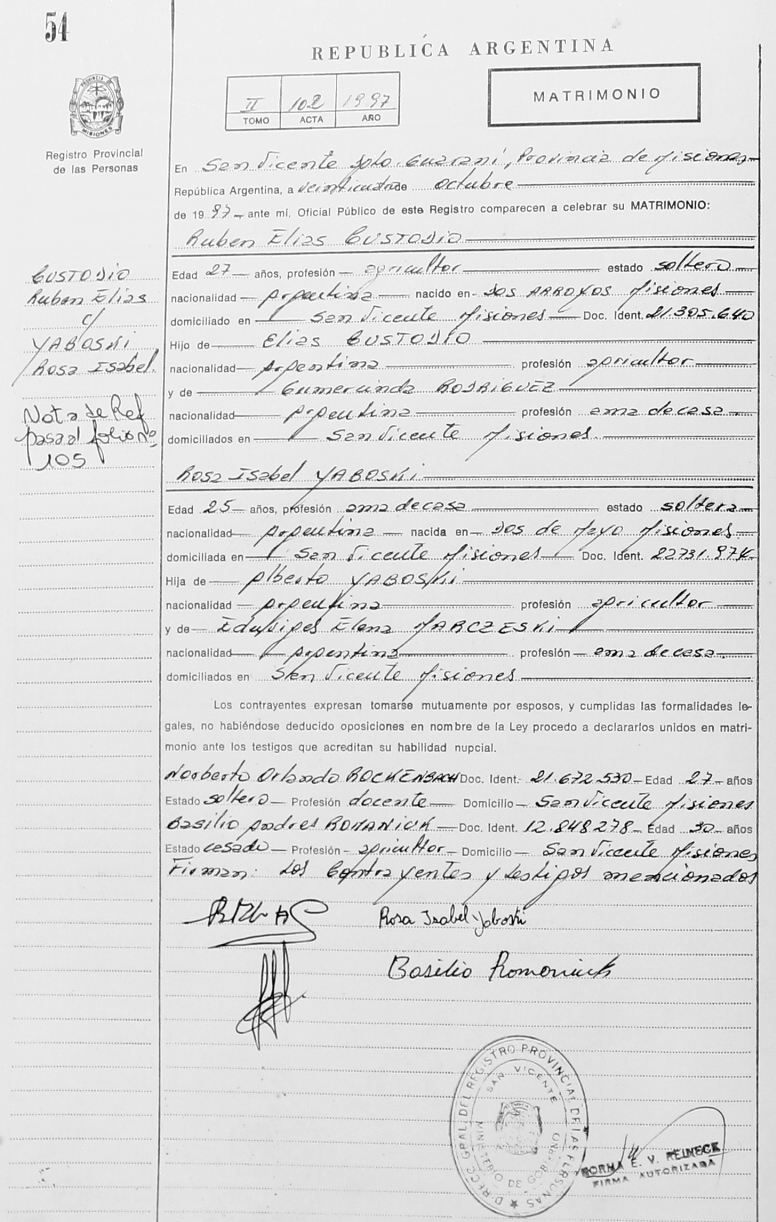 54
REPUBLICA ARGENTINA
II 102 1997
TOMO ACTA AÑO
MATRIMONIO
Registro Provincial
de las Personas
En San Vicente Dpto. Guaraní, Provincia de Misiones
República Argentina, a veinticuatro de octubre
de 1997 ante mí, Oficial Público de este Registro comparecen a celebrar su MATRIMONIO:
Ruben Elias CUSTODIO
CUSTODIO
Ruben Elias
c/
YABOSKI
Rosa Isabel.
Nota de Ref
pasa al folio nº
105
Edad 27 años, profesión agricultor estado soltero
nacionalidad Argentina nacido en DOS ARROYOS Misiones
domiciliado en San Vicente Misiones Doc. Ident. 21.305.640
Hijo de Elias CUSTODIO
nacionalidad Argentina profesión agricultor
y de Gumercinda RODRIGUEZ
nacionalidad Argentina profesión ama de casa
domiciliados en San Vicente Misiones.
Rosa Isabel YABOSKI
Edad 25 años, profesión ama de casa estado soltera
nacionalidad Argentina nacida en Dos de Mayo Misiones
domiciliada en San Vicente Misiones Doc. Ident. 22731.974
Hija de Alberto YABOSKI
nacionalidad Argentina profesión agricultor
y de Eduviges Elena MARCZESKI
nacionalidad Argentina profesión ama de casa.
domiciliados en San Vicente Misiones
Los contrayentes expresan tomarse mutuamente por esposos, y cumplidas las formalidades le-
gales, no habiéndose deducido oposiciones en nombre de la Ley procedo a declararlos unidos en matri-
monio ante los testigos que acreditan su habilidad nupcial.
Norberto Orlando ROCKENBACH Doc. Ident. 21.672.530 Edad 27 años
Estado soltero Profesión docente Domicilio San Vicente Misiones
Basilio Andres ROMANIUK Doc. Ident. 12.848.278 Edad 30 años
Estado casado Profesión agricultor Domicilio San Vicente Misiones
Firman: Los Contrayentes y testigos mencionados
Rosa Isabel Yaboski
Basilio Romaniuk
DIRECC. GRAL. DEL REGISTRO PROVINCIAL DE LAS PERSONAS
SAN VICENTE
MINISTERIO DE GOBIERNO
NORMA E. V. REINECK
FIRMA AUTORIZADA